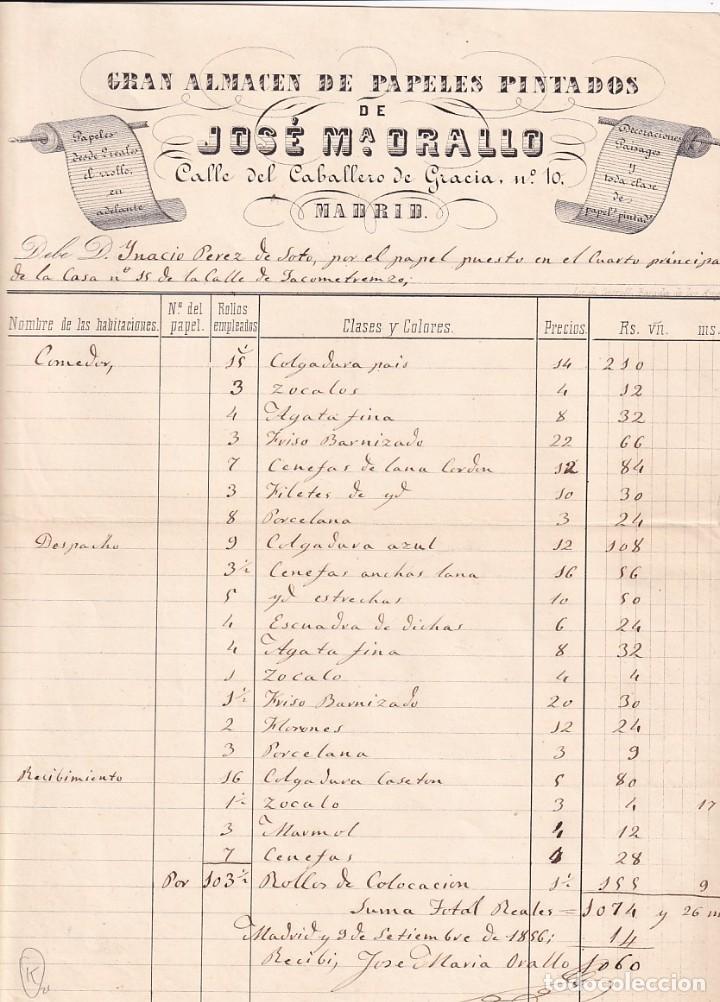 GRAN ALMACEN DE PAPELES PINTADOS
DE
JOSÉ Mª. ORALLO
Calle del Caballero de Gracia, nº 10.
MADRID.
Papeles
desde 2 reales
el rrollo,
en
adelante
Decoraciones
Paisages
y
toda clase
de
papel pintado
Debe D. Ynacio Perez de Soto, por el papel puesto en el Cuarto principa
de la Casa nº 15 de la Calle de Jacometrenzo;
Nombre de las habitaciones. Nº. del papel. Rollos empleados Clases y Colores. Precios. Rs. vn. ms.
Comedor, 15 Colgadura pais 14 210
3 Zocalos 4 12
4 Agata fina 8 32
3 Friso Barnizado 22 66
7 Cenefas de lana Cordon 12 84
3 Filetes de yd 10 30
8 Porcelana 3 24
Despacho 9 Colgadura azul 12 108
3½ Cenefas anchas lana 16 56
5 yd estrechas 10 50
4 Escuadra de dichas 6 24
4 Agata fina 8 32
1 Zocalo 4 4
1½ Friso Barnizado 20 30
2 Florones 12 24
3 Porcelana 3 9
Recibimiento 16 Colgadura Caseton 5 80
1½ Zocalo 3 4 17
3 Marmol 4 12
7 Cenefas 4 28
Por 103½ Rollos de Colocacion 1½ 155 9
Suma Total Reales = 1074 y 26 m
Madrid y 9 de Setiembre de 1856; 14
Recibi, Jose Maria Orallo 1060
K
todocoleccion